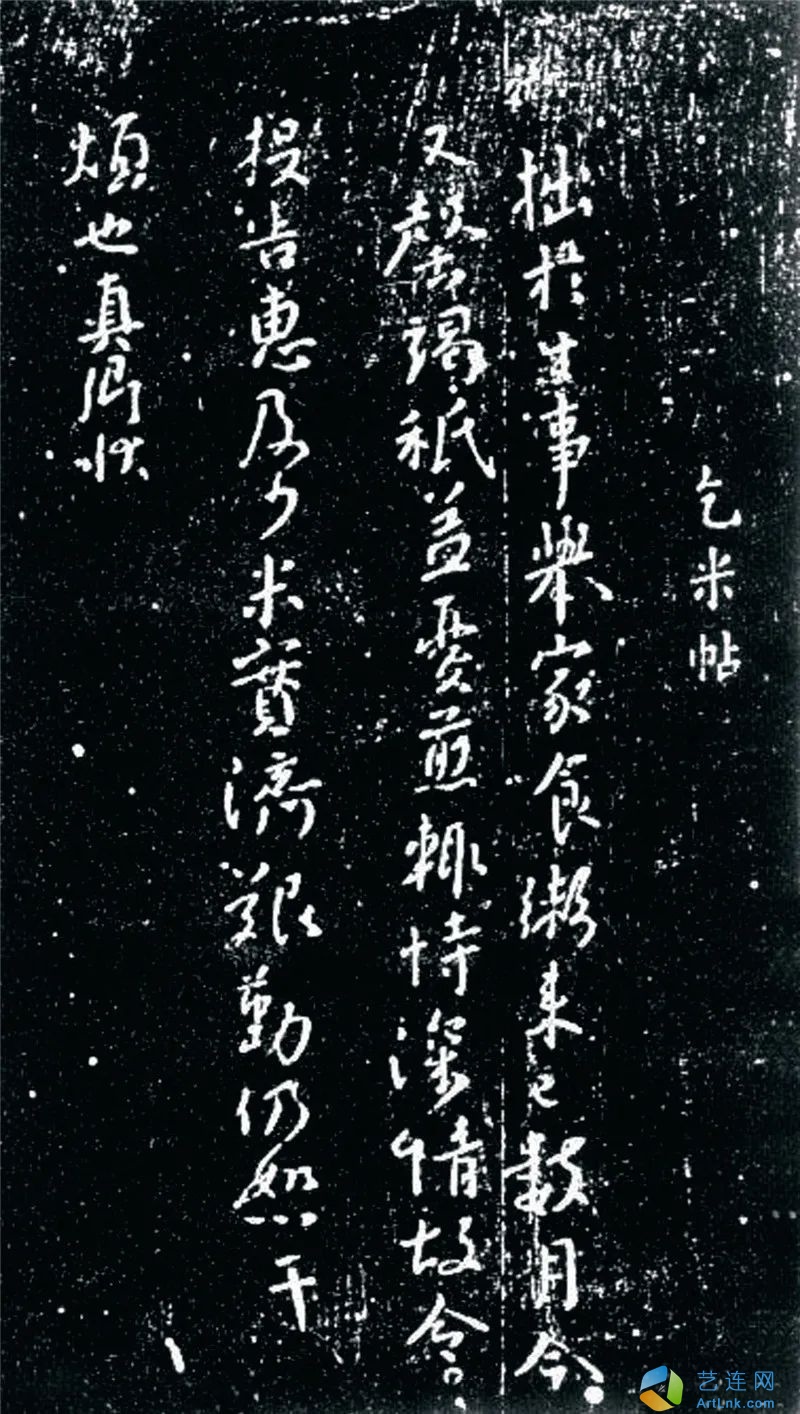 乞米帖
拙於生事舉家食粥来已數月今
又罄竭秖益憂煎輙恃深情故令
投告惠及少米實濟艱勤仍恕干
煩也真卿狀
艺连网
Artlink.com